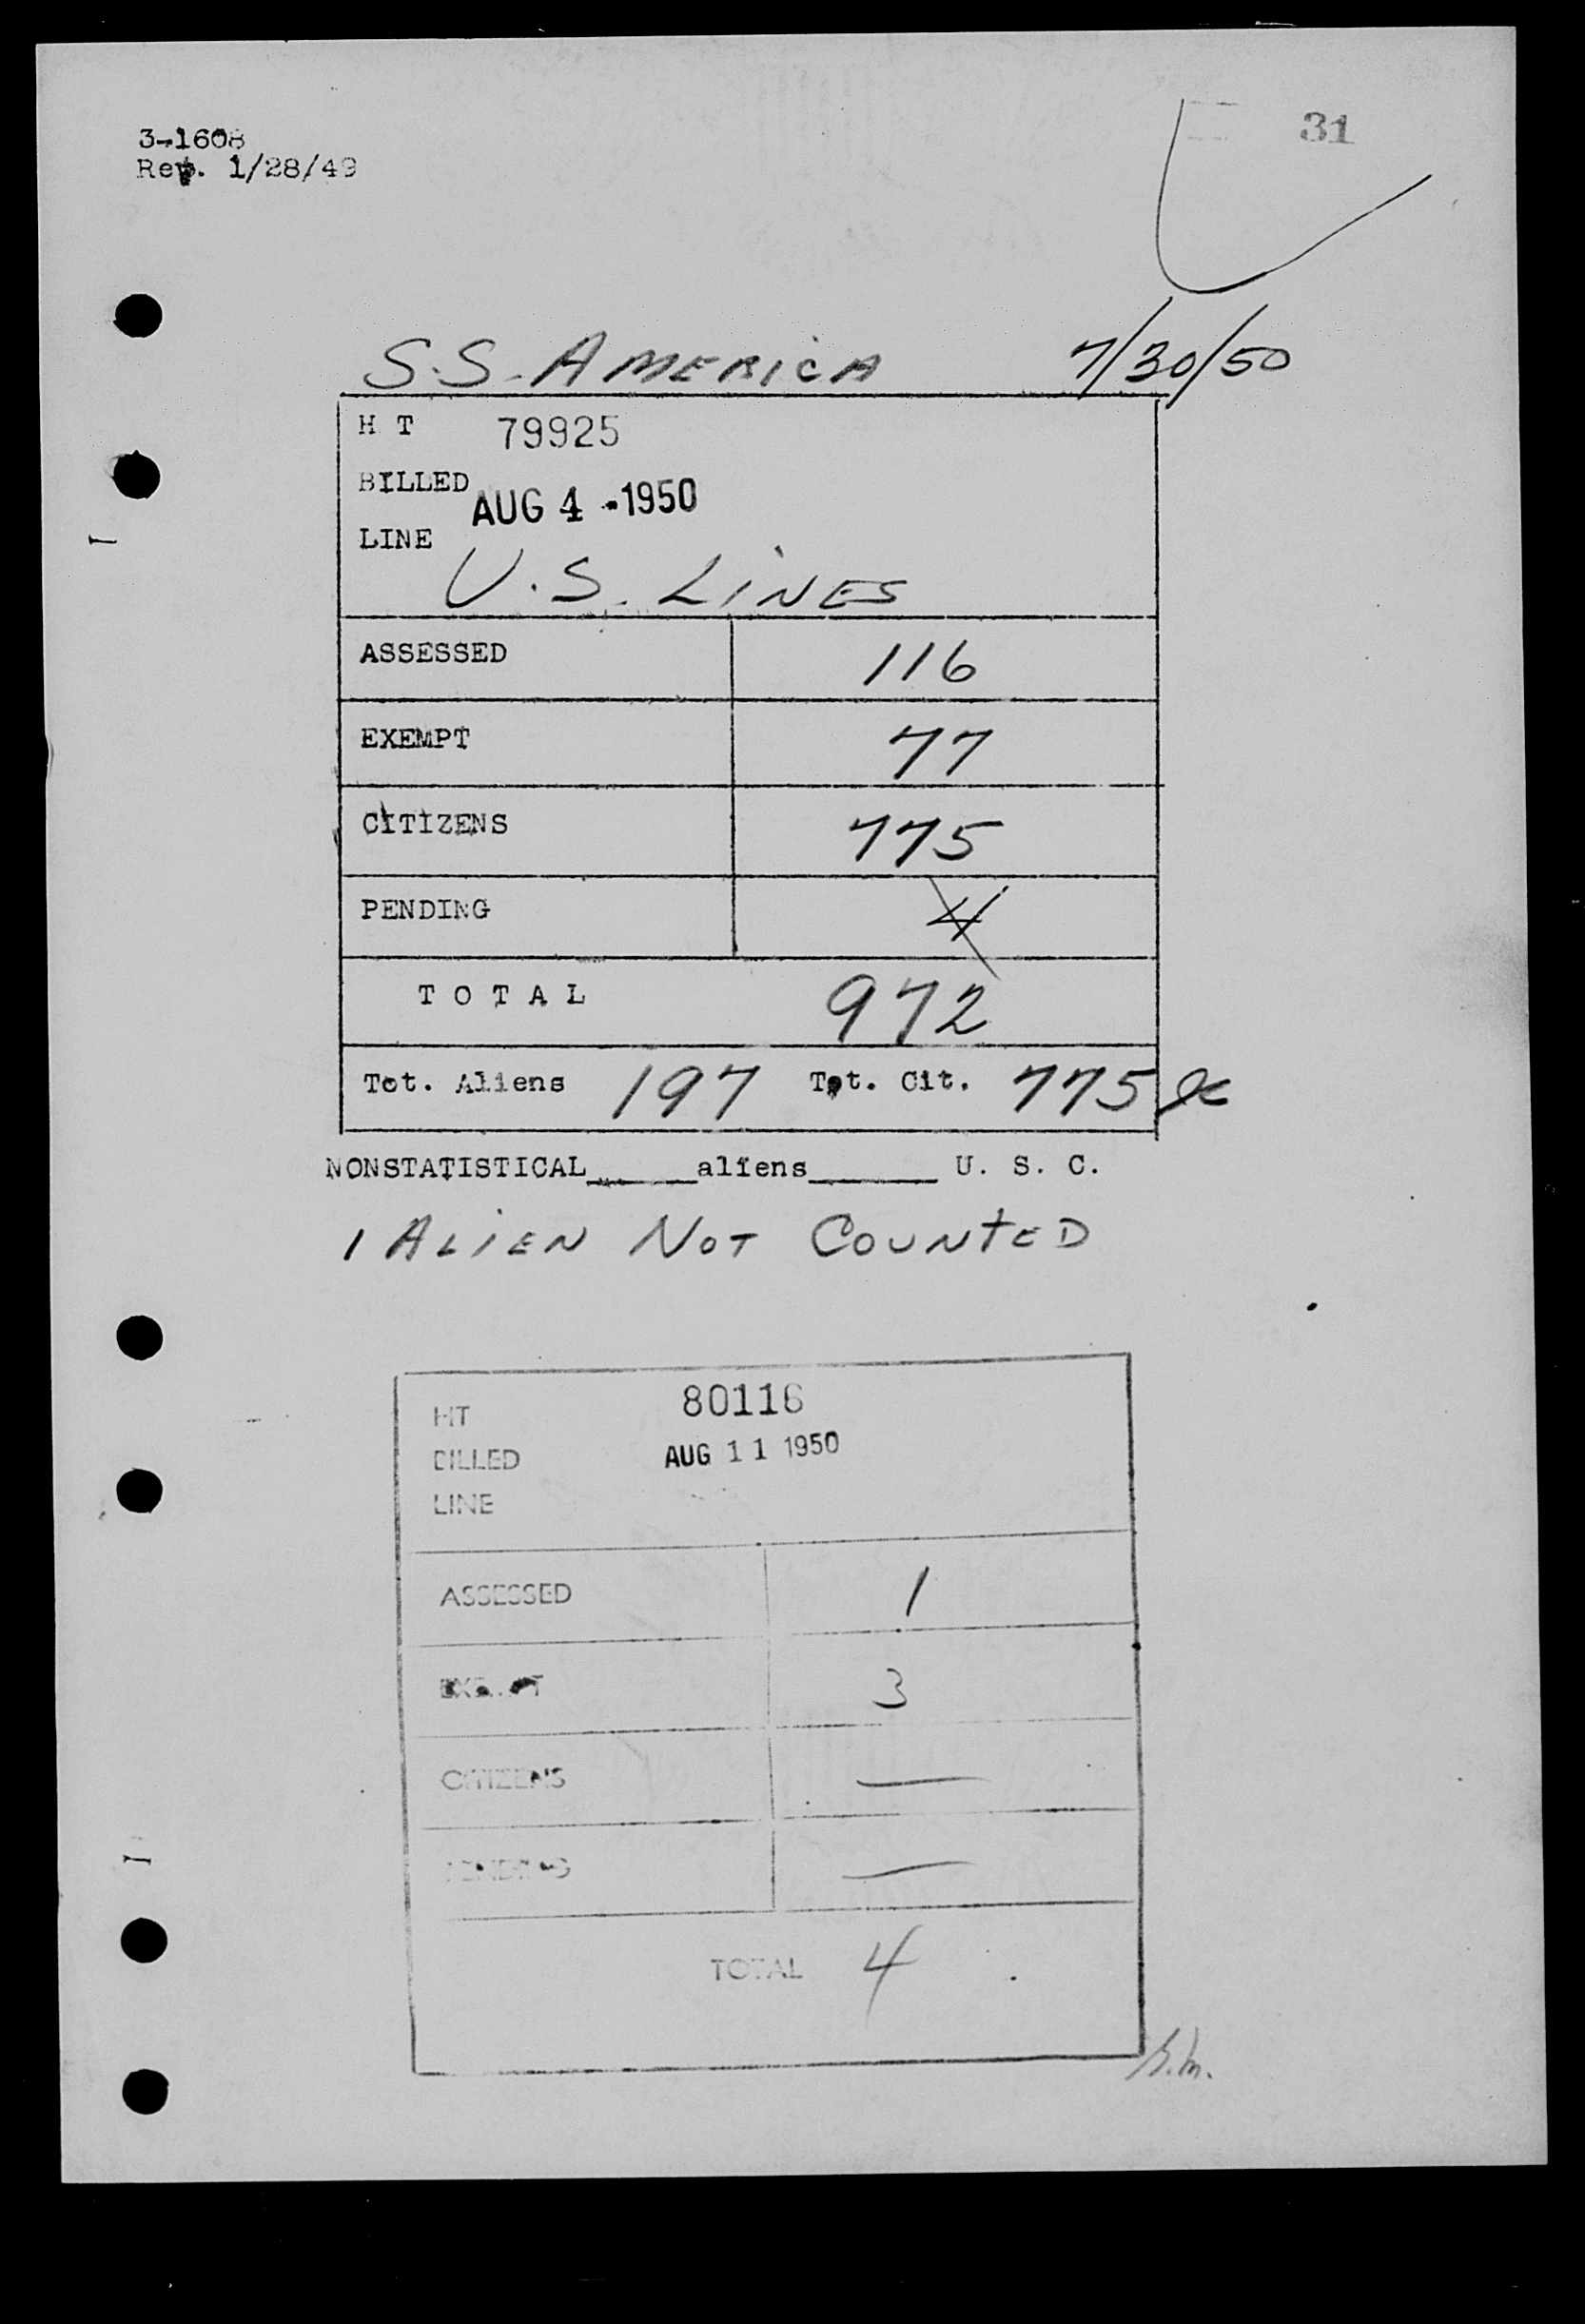 31
3-1608
Rev. 1/28/49
S.S. AMERICA 7/30/50
H T 79925
BILLED AUG 4 - 1950
LINE
U.S. LINES
ASSESSED 116
EXEMPT 77
CITIZENS 775
PENDING 4
T O T A L 972
Tot. Aliens 197 Tot. Cit. 775
NONSTATISTICAL_____aliens______ U. S. C.
1 ALIEN NOT COUNTED
HT 80116
BILLED AUG 11 1950
LINE
ASSESSED 1
EXEMPT 3
CITIZENS —
PENDING —
TOTAL 4